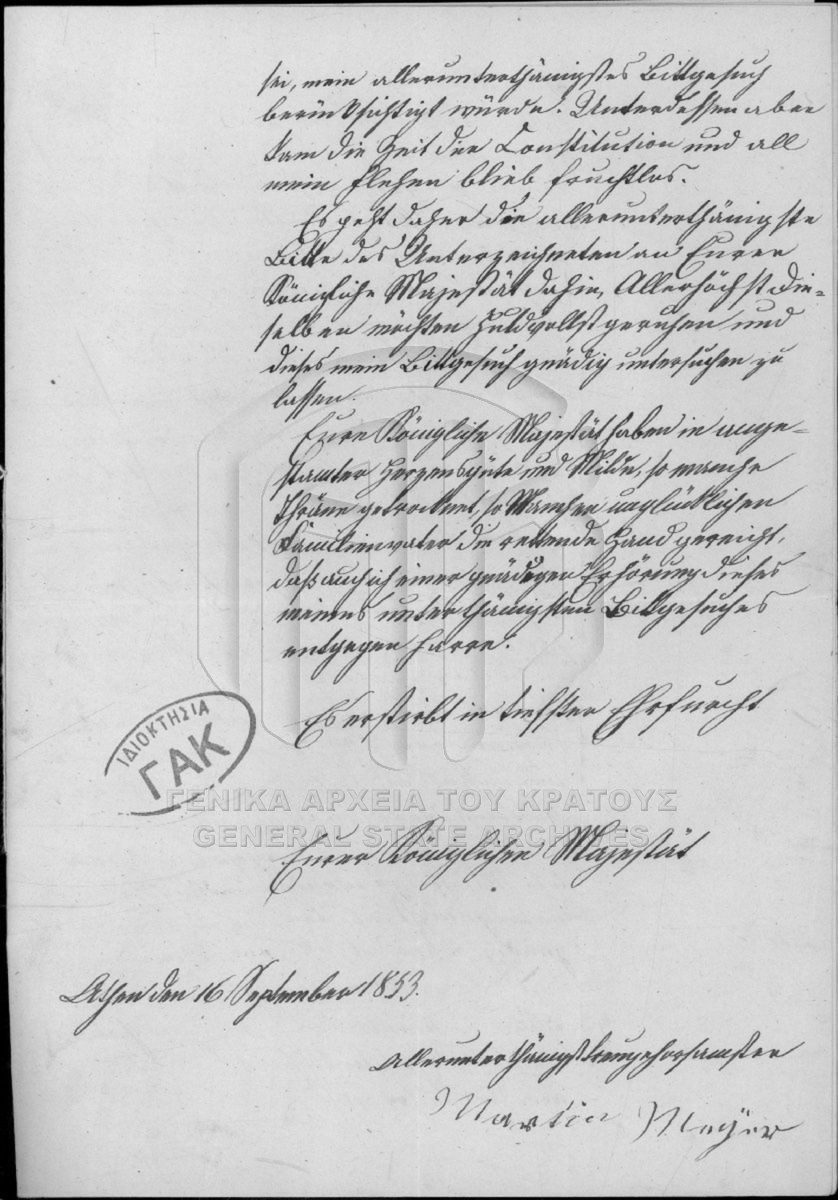 sei, mein allerunterthänigstes Bittgesuch
berücksichtigt würde. Unterdessen aber
kam die Zeit der Constitution und all
mein Flehen blieb fruchtlos.
Es geht daher die allerunterthänigste
Bitte des Unterzeichneten an Eurer
Königliche Majestät dahin, Allerhöchst die-
selben möchten huldvollst geruhen und
dieses mein Bittgesuch gnädig untersuchen zu
lassen.
Eure Königliche Majestät haben in ange-
stamter Herzensgüte und Milde, so manche
Thräne getrocknet, so Manchen unglücklichen
Familienvater die rettende Hand gereicht,
daß auch ich einer gnädigen Erhörung dieses
meines unterthänigsten Bittgesuches
entgegen harre.
Es erstirbt in tiefster Ehrfurcht
ΙΔΙΟΚΤΗΣΙΑ
ΓΑΚ
ΓΕΝΙΚΑ ΑΡΧΕΙΑ ΤΟΥ ΚΡΑΤΟΥΣ
GENERAL STATE ARCHIVES
Eurer Königlichen Majestät
Athen den 16 September 1853.
Allerunterthänigst treugehorsamster
Martin Meÿer